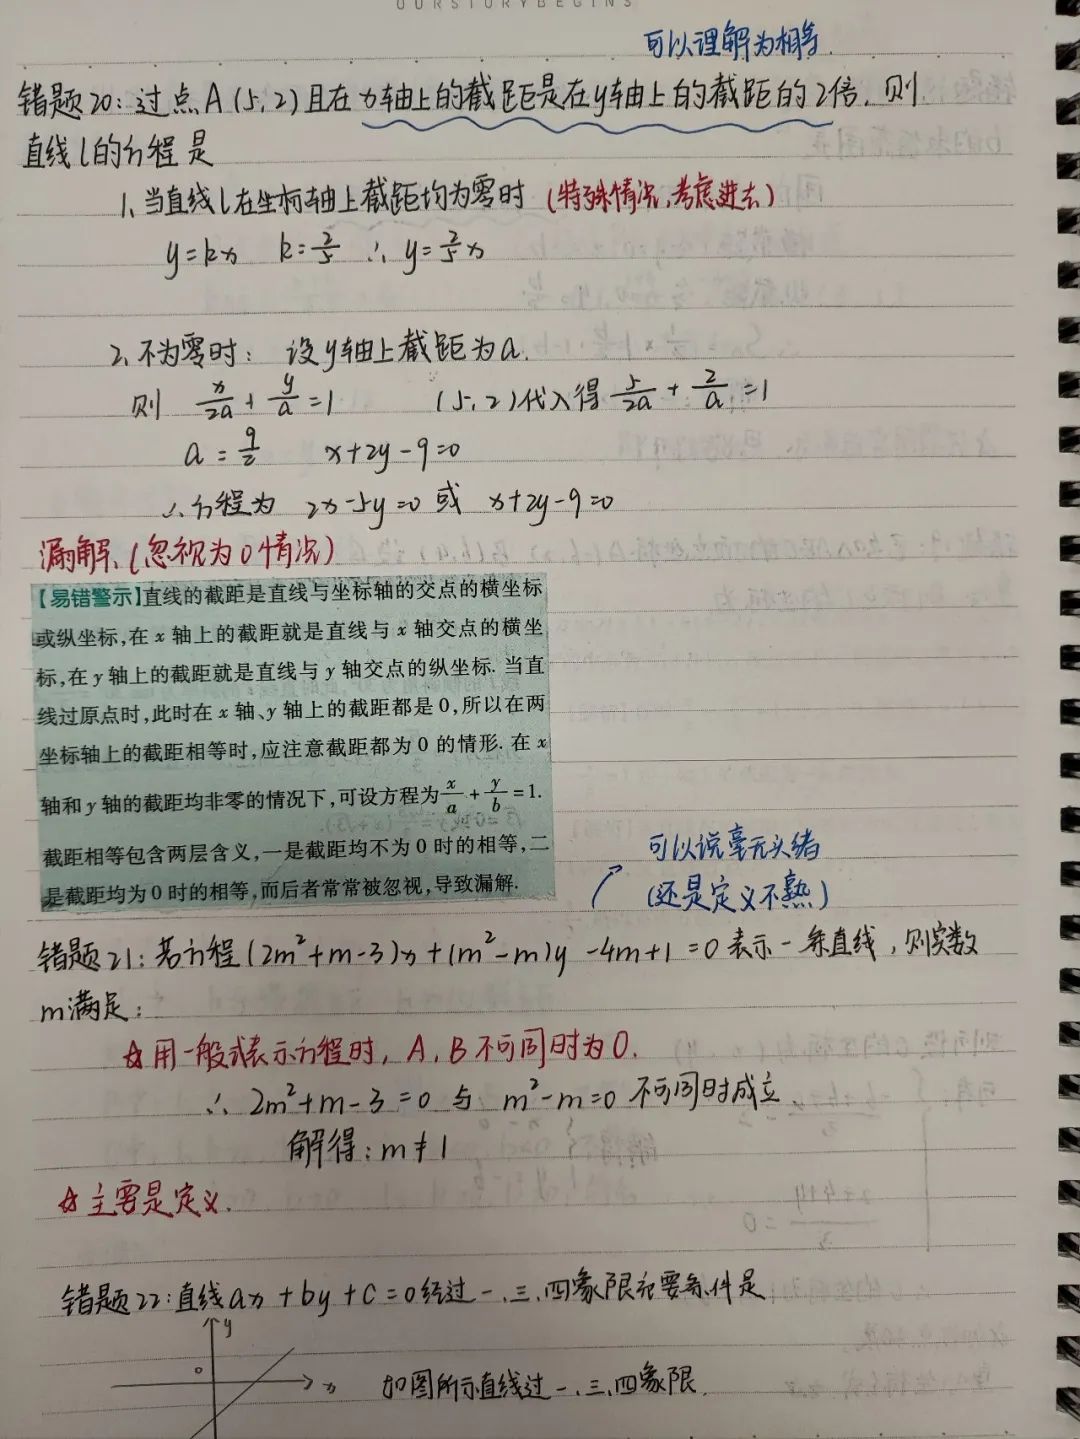 OURSTORYBEGINS
可以理解为相等.
错题20:过点A(5,2)且在x轴上的截距是在y轴上的截距的2倍.则
直线l的方程是
1、当直线l在坐标轴上截距均为零时 (特殊情况,考虑进去)
y=kx k=2/5 ∴ y=2/5x
2、不为零时: 设y轴上截距为a.
则 x/2a + y/a =1 (5,2)代入得 5/2a + 2/a =1
a=9/2 x+2y-9=0
∴方程为 2x-5y=0 或 x+2y-9=0
漏解、(忽视为0情况)
【易错警示】直线的截距是直线与坐标轴的交点的横坐标
或纵坐标,在x轴上的截距就是直线与x轴交点的横坐
标,在y轴上的截距就是直线与y轴交点的纵坐标. 当直
线过原点时,此时在x轴、y轴上的截距都是0,所以在两
坐标轴上的截距相等时,应注意截距都为0的情形. 在x
轴和y轴的截距均非零的情况下,可设方程为x/a+y/b=1.
截距相等包含两层含义,一是截距均不为0时的相等,二
是截距均为0时的相等,而后者常常被忽视,导致漏解.
可以说毫无头绪
(还是定义不熟)
错题21:若方程(2m²+m-3)x+(m²-m)y-4m+1=0表示一条直线,则实数
m满足:
☆用一般式表示方程时,A、B不可同时为0.
∴ 2m²+m-3=0 与 m²-m=0 不可同时成立.
解得:m≠1
☆主要是定义.
错题22:直线ax+by+c=0经过一、三、四象限充要条件是
y
0
x
如图所示直线过一、三、四象限.